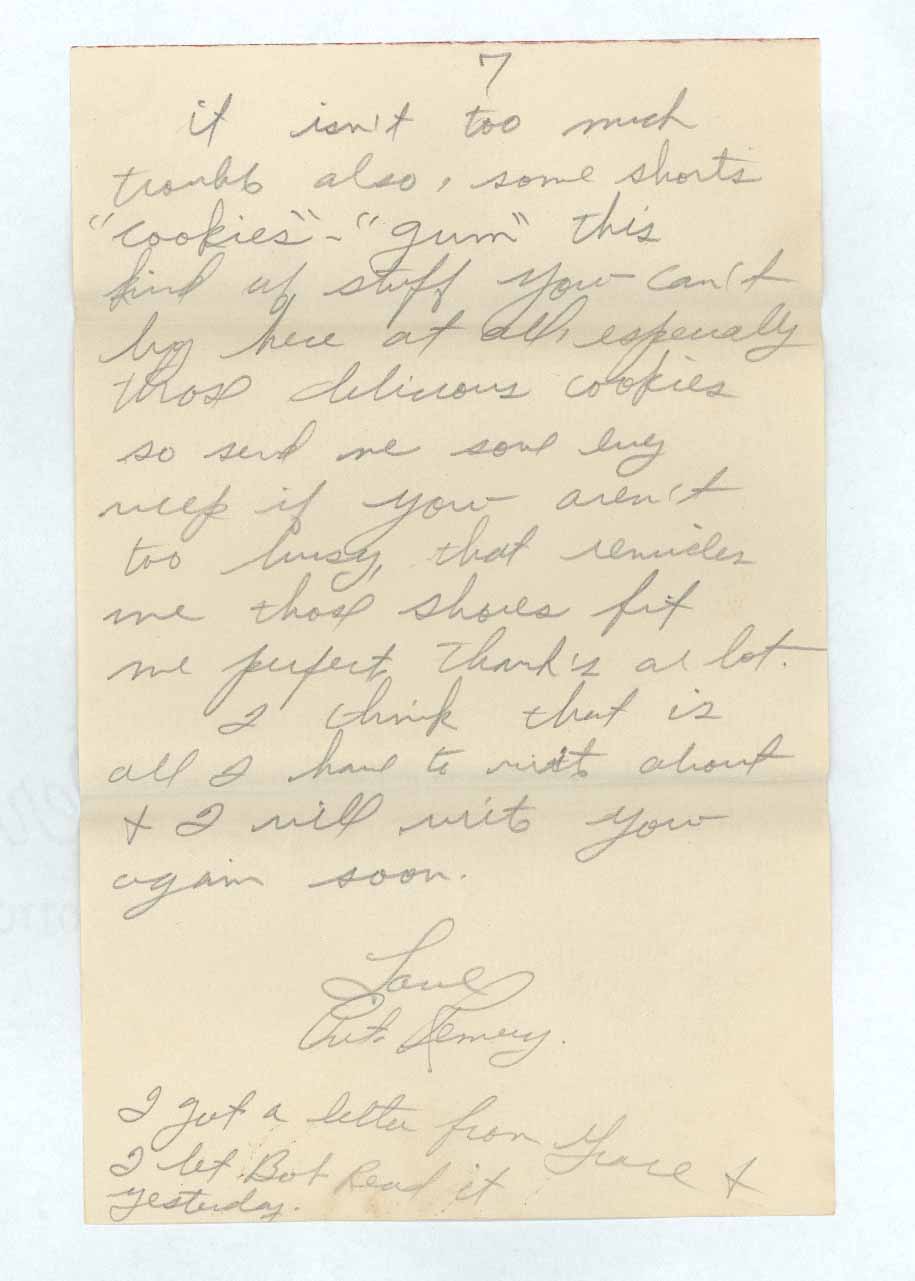 7
it isn't too much
trouble also, some shorts
"cookies" - "gum" this
kind of stuff you can't
buy here at all, especially
those delicious cookies
so send me some every
week if you aren't
too busy, that reminds
me those shoes fit
me perfect, thank's a lot.
I think that is
all I have to write about
+ I will write you
again soon.
Love
Pvt.
I got a letter from Grace +
I let Bob Read it
yesterday.